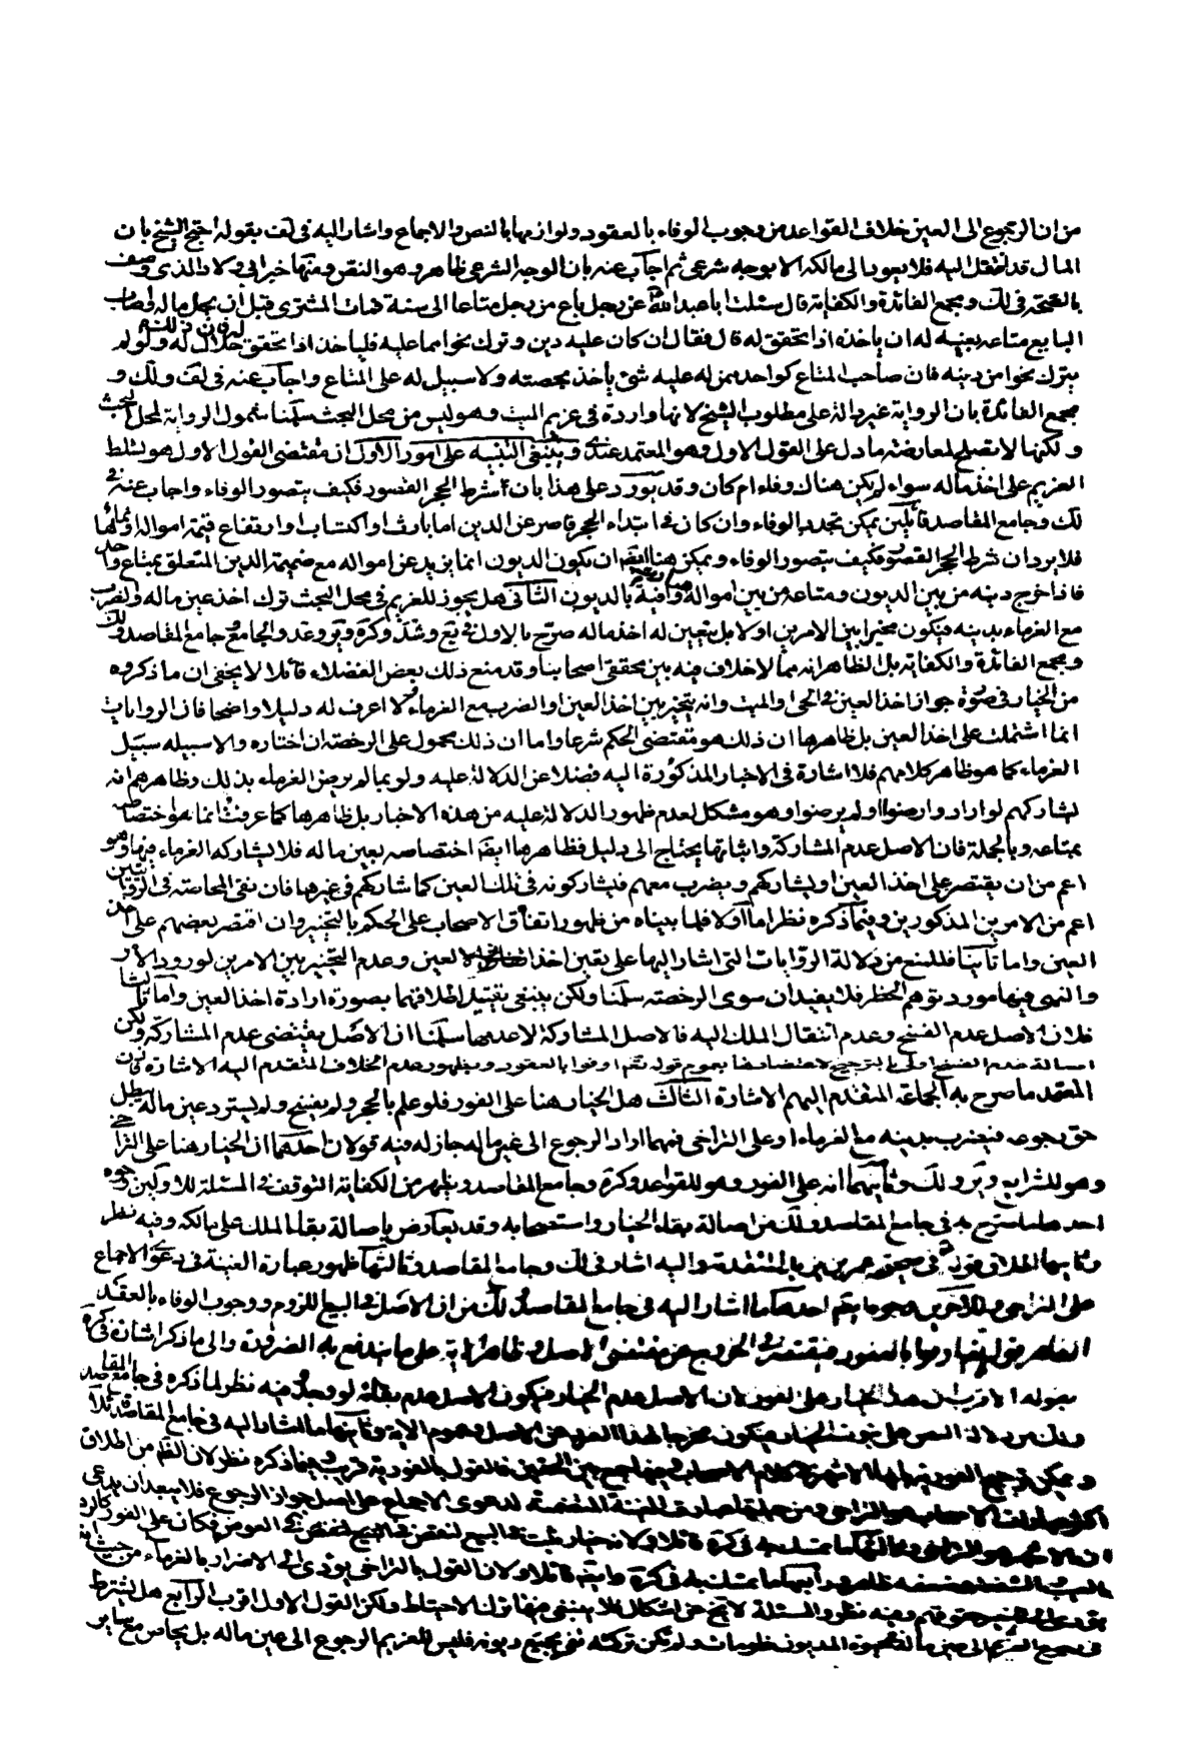 من ان الرجوع الى العين خلاف القواعد من وجوب الوفاء بالعقود ولوازمها بالنص والاجماع واشار اليه فى لف بقوله احتج الشيخ بان
المال قد انتقل اليه فلا يعود الى مالكه الا بوجه شرعى ثم اجاب عنه بان الوجه الشرعى ظاهر وهو النص ومنها خبر ابى ولاد الذى وصف
بالصحة فى لك ومجمع الفائدة والكفاية قال سئلت ابا عبد الله عن رجل باع من رجل متاعا الى سنة فمات المشترى قبل ان يحل ماله واصاب
البايع متاعه بعينه له ان ياخذه اذا تحقق له قال فقال ان كان عليه دين وترك نحوا مما عليه فلياخذه اذا تحقق له فان ذلك حلال له ولو لم
يترك نحوا من دينه فان صاحب المتاع كواحد ممن له عليه شئ يأخذ بحصته ولا سبيل له على المتاع واجاب عنه فى لف ولك و
مجمع الفائدة بان الرواية غير دالة على مطلوب الشيخ لانها واردة فى غريم الميت وهو ليس من محل البحث سلمنا شمول الرواية لمحل البحث
ولكنها لا تصلح لمعارضة ما دل على القول الاول وهو المعتمد عندى وينبغى التنبيه على امور الاول ان مقتضى القول الاول هو تسلط
الغريم على اخذ ماله سواء لم يكن هناك وفاء ام كان وقد يورد على هذا بان شرط الحجر القصور فكيف يتصور الوفاء واجاب عنه فى
لك وجامع المقاصد قائلين يمكن تجدد الوفاء وان كان فى ابتداء الحجر قاصر عن الدين اما بارث او اكتساب او ارتفاع قيمة امواله او نمائها
فلا يرد ان شرط الحجر القصور فكيف يتصور الوفاء ويمكن هنا ايضا ان يكون الديون انما يزيد عن امواله مع ضميمة الدين المتعلق بمتاع واحد
فاذا اخرج دينه من بين الديون ومتاعه من بين امواله وافية بالديون الثانى هل يجوز للغريم فى محل البحث ترك اخذ عين ماله والضرب
مع الغرماء بدينه فيكون مخيرا بين الامرين او لا بل يتعين له اخذ ماله صرح بالاول فى يع وشد وكره وير وعد والجامع وجامع المقاصد ولك
ومجمع الفائدة والكفاية بل الظاهر انه مما لا خلاف فيه بين محققى اصحابنا وقد منع ذلك بعض الفضلاء قائلا لا يخفى ان ما ذكروه
من الخيار فى صورة جواز اخذ العين فى الحى والميت وانه يتخير بين اخذ العين او الضرب مع الغرماء لا اعرف له دليلا واضحا فان الروايات
انما اشتملت على اخذ العين بل ظاهرها ان ذلك هو مقتضى الحكم شرعا واما ان ذلك محمول على الرخصة ان اختاره والا سبيله سبيل
الغرماء كما هو ظاهر كلامهم فلا اشارة فى الاخبار المذكورة اليه فضلا عن الدلالة عليه ولو بما لم يرض الغرماء بذلك وظاهرهم انه
يشاركهم لو اراد وارضوا او لم يرضوا وهو مشكل لعدم ظهور الدلالة عليه من هذه الاخبار بل ظاهرها كما عرفت انما هو اختصاصه
بمتاعه وبالجملة فان الاصل عدم المشاركة واثباتها يحتاج الى دليل فظاهرها ايضا اختصاصه بعين ماله فلا يشاركه الغرماء فيها وهو
اعم من ان يقتصر على اخذ العين او يشاركهم ويضرب معهم فيشاركونه فى تلك العين كما شاركهم فى غيرها فان نفى المحاصة فى الروايتين
اعم من الامرين المذكورين وفيما ذكره نظر اما اولا فلما بيناه من ظهور اتفاق الاصحاب على الحكم بالتخيير وان اقتصر بعضهم على اخذ
العين واما ثانيا فللمنع من دلالة الروايات التى اشار اليها على تعين اخذ العين وعدم التخيير بين الامرين لورود الامر
والنهى فيها مورد توهم الحظر فلا يفيدان سوى الرخصة سلمنا ولكن ينبغى تقييد اطلاقهما بصورة ارادة اخذ العين واما ثالثا
فلان الاصل عدم الفسخ وعدم انتقال الملك اليه فالاصل المشاركة لا عدمها سلمنا ان الاصل يقتضى عدم المشاركة ولكن
اصالة عدم الفسخ اولى بالترجيح لاعتضادها بعموم قوله تعالى اوفوا بالعقود وبظهور عدم الخلاف المتقدم اليه الاشارة فان
المعتمد ما صرح به الجماعة المتقدم اليهم الاشارة الثالث هل الخيار هنا على الفور فلو علم بالحجر ولم يفسخ ولم يسترد عين ماله بطل
حق رجوعه فيضرب بدينه مع الغرماء او على التراخى فمهما اراد الرجوع الى عين ماله جاز له فيه قولان احدهما ان الخيار هنا على التراخى
وهو للشرايع وير ولك وثانيهما انه على الفور وهو للقواعد وكره وجامع المقاصد ويظهر من الكفاية التوقف فى المسئلة للاولين وجوه
احدها ما صرح به فى جامع المقاصد ولك من اصالة بقاء الخيار واستصحابه وقد يعارض باصالة بقاء الملك على مالكه وفيه نظر
وثانيها اطلاق قوله فى صحيحة عمر بن يزيد المتقدمة واليه اشار فى لك وجامع المقاصد وثالثها ظهور عبارة الغنية فى دعوى الاجماع
على التراخى وللآخرين وجوه ايضا احدها ما اشار اليه فى جامع المقاصد ولك من ان الاصل فى البيع اللزوم ووجوب الوفاء بالعقد
الظاهر قوله تعالى اوفوا بالعقود فيقتصر فى الخروج عن مقتضى الاصل وظاهر الاية على ما يندفع به الضرورة والى ما ذكر اشار فى كره
بقوله الاقرب ان هذا الخيار على الفور لان الاصل عدم الخيار فيكون الاصل عدم بقائه لو وجد وفيه نظر لما ذكره فى جامع المقاصد
ولك من دلالة النص على ثبوت الخيار فيكون مخرجا لهذا الفرد عن الاصل وعموم الاية وثانيهما ما اشار اليه فى جامع المقاصد قائلا
ويمكن ترجيح الفورية
اكثر عبارات الاصحاب هو التراخى